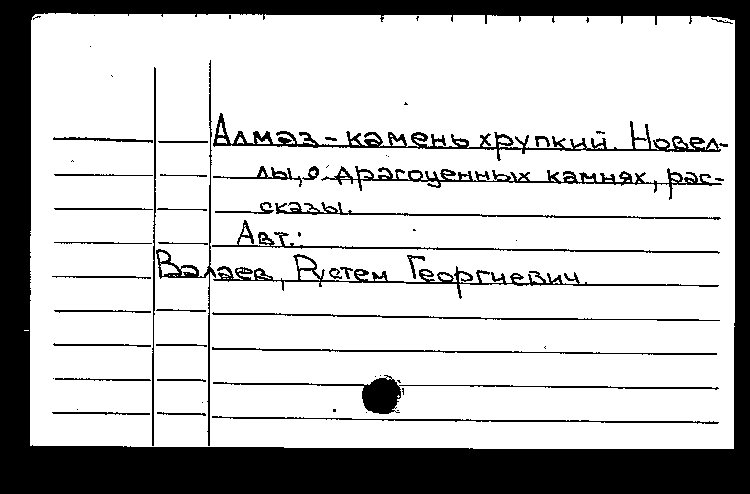 Алмаз - камень хрупкий. Новел-
лы, о драгоценных камнях, рас-
сказы.
Авт.:
Валаев, Рустем Георгиевич.